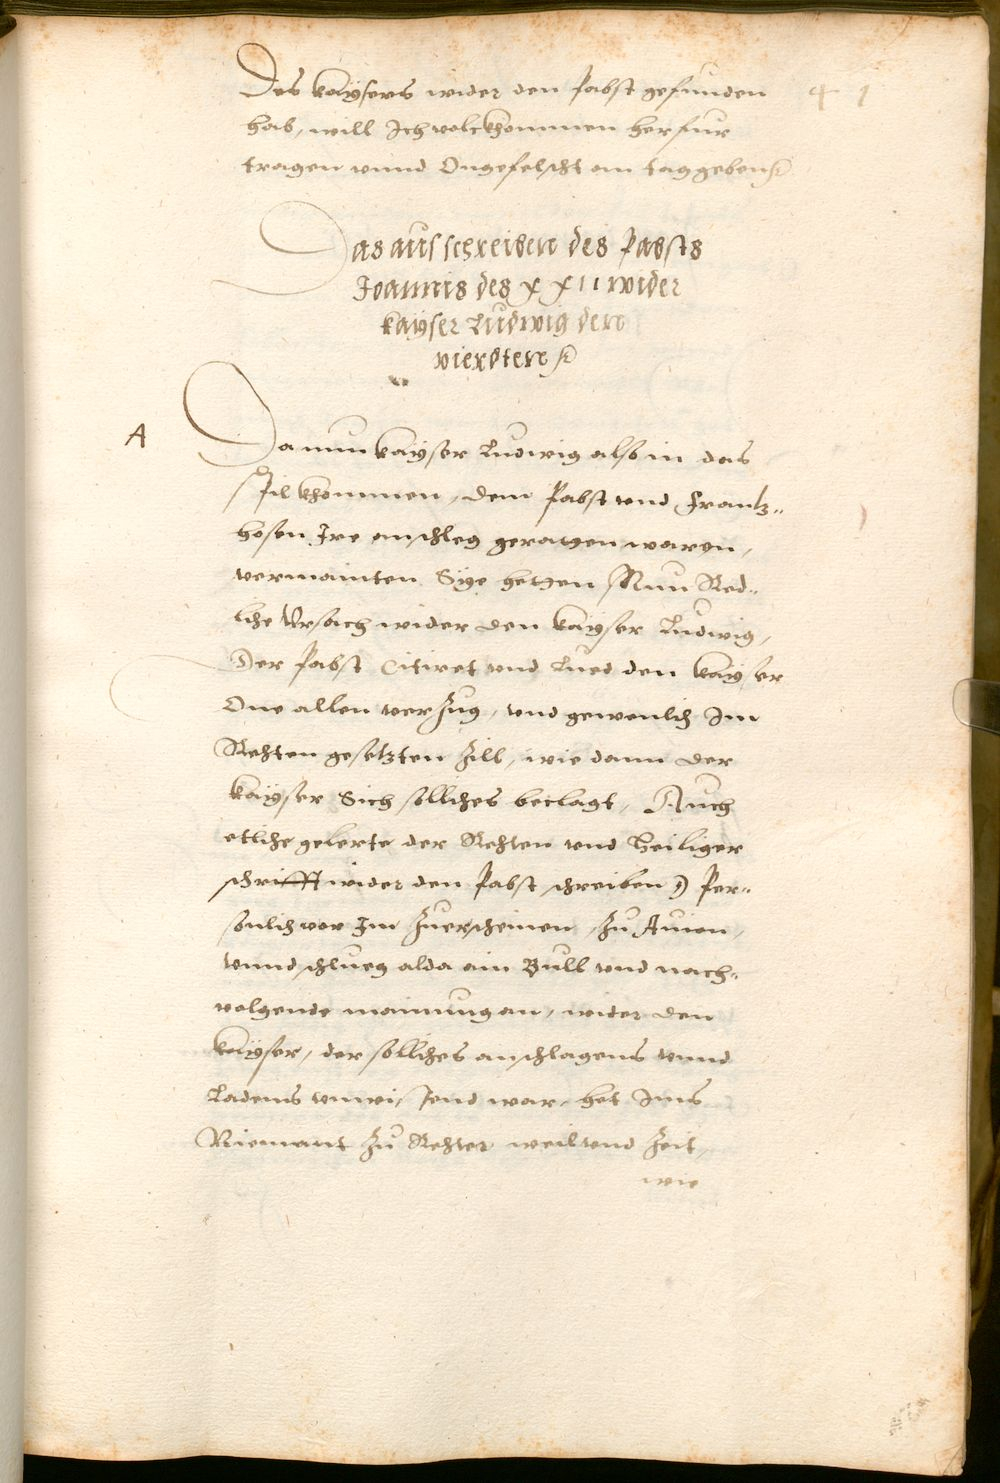 Des kaysers wider den Pabst gefunden
hab, will Ich volckhommen herfur
tragen vnnd Ongefelscht an tag geben
41
Das ausschreiben des Pabsts
Joannis des XXII wider
kayser Ludwig den
vierdten
A
Da nun kayser Ludwig also in das
spil khommen, dem Pabst vnd Frantz„
hosen Ire anschleg geraten waren,
vermainten Sye hetten Nun Red„
liche Vrsach wider den kayser Ludwig,
Der Pabst Citiret vnd Lued den kayser
One allen verzug, vnd gewenlich Im
Rechten gesetzten Zill, wie dann der
kayser Sich solliches beclagt, Auch
etliche gelerte der Rechten vnd Heiliger
schrifft wider den Pabst schreiben) Per„
sonlich vor Im Zuerscheinen, Zu Auion,
vnnd schlueg alda ain Bull vnd nach„
volgende mainung an, wider den
kayser, der solliches anschlagens vnnd
Ladens vnwissend war, het Ims
Niemant Zu Rechter weil vnd Zeit,
wie